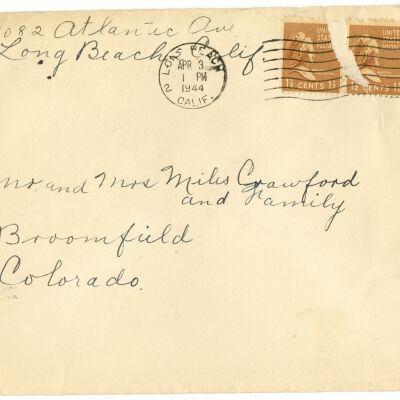 1082 Atlantic Ave
Long Beach, Calif.
LONG BEACH
2
APR 3
1 PM
1944
CALIF.
UNITED
STATES
1½ CENTS 1½
UNITED
STATES
1½ CENTS 1½
Mr. and Mrs Miles Crawford
and Family
Broomfield
Colorado.